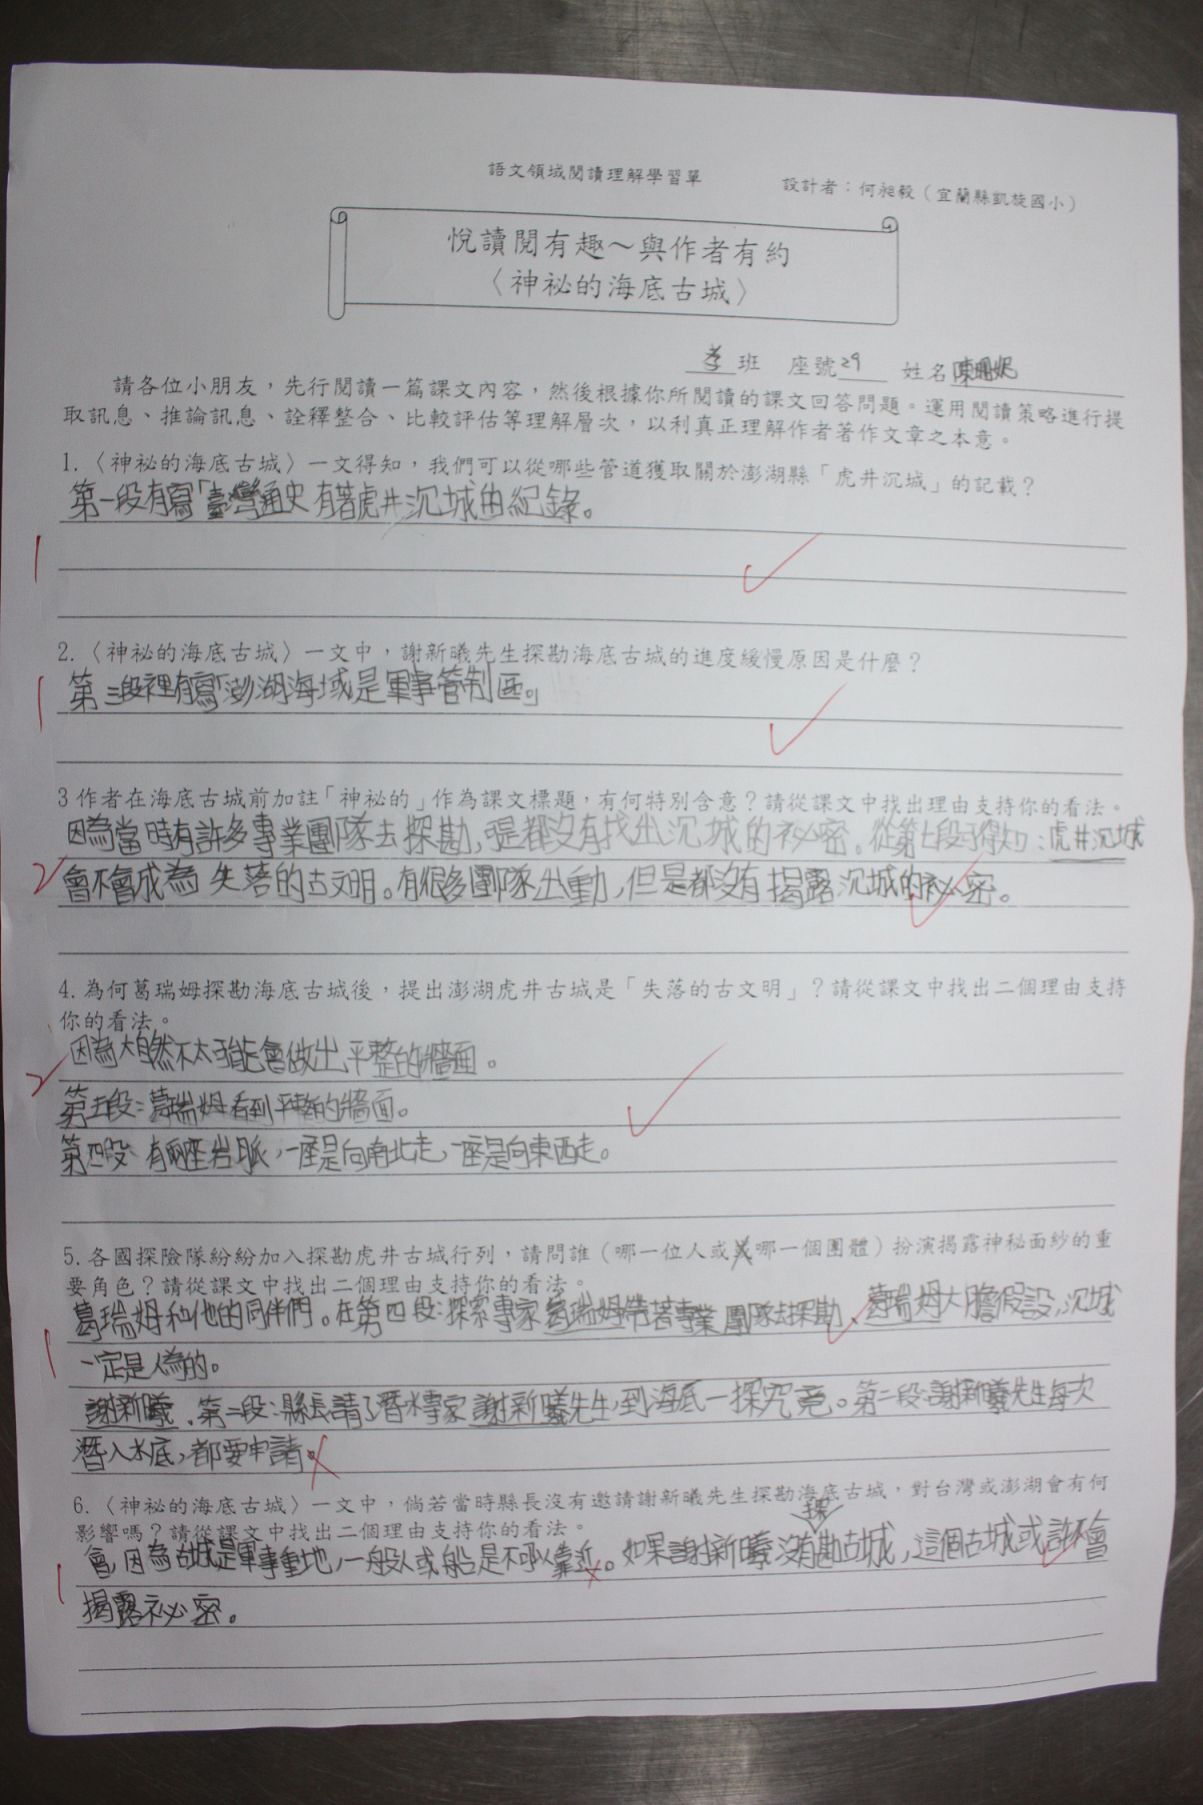 語文領域閱讀理解學習單
設計者：何昶毅（宜蘭縣凱旋國小）
悅讀閱有趣～與作者有約
〈神祕的海底古城〉
孝班 座號29 姓名陳珊妮
請各位小朋友，先行閱讀一篇課文內容，然後根據你所閱讀的課文回答問題。運用閱讀策略進行提
取訊息、推論訊息、詮釋整合、比較評估等理解層次，以利真正理解作者著作文章之本意。
1.〈神祕的海底古城〉一文得知，我們可以從哪些管道獲取關於澎湖縣「虎井沉城」的記載？
第一段有寫「臺灣通史有著虎井沉城的紀錄。
1
2.〈神祕的海底古城〉一文中，謝新曦先生探勘海底古城的進度緩慢原因是什麼？
第三段裡有寫「澎湖海域是軍事管制區。」
1
3作者在海底古城前加註「神祕的」作為課文標題，有何特別含意？請從課文中找出理由支持你的看法。
因為當時有許多專業團隊去探勘，可是都沒有找出沉城的祕密。從第七段可得知：虎井沉城
2 會不會成為失落的古文明。有很多團隊出動，但是都沒有揭露沉城的祕密。
4.為何葛瑞姆探勘海底古城後，提出澎湖虎井古城是「失落的古文明」？請從課文中找出二個理由支持
你的看法。
2 因為大自然不太可能會做出平整的牆面。
第五段：葛瑞姆看到平整的牆面。
第四段：有兩座岩脈，一座是向南北走，一座是向東西走。
5.各國探險隊紛紛加入探勘虎井古城行列，請問誰（哪一位人或哪一個團體）扮演揭露神秘面紗的重
要角色？請從課文中找出二個理由支持你的看法。
葛瑞姆和他的同伴們。在第四段：探索專家葛瑞姆帶著專業團隊去探勘、葛瑞姆大膽假設，沉城
1 一定是人為的。
謝新曦、第二段：縣長請了潛水專家謝新曦先生，到海底一探究竟。第二段：謝新曦先生每次
潛入水底，都要申請。
6.〈神祕的海底古城〉一文中，倘若當時縣長沒有邀請謝新曦先生探勘海底古城，對台灣或澎湖會有何
影響嗎？請從課文中找出二個理由支持你的看法。
會，因為古城是軍事重地，一般人或船是不可以靠近。如果謝新曦沒有探勘古城，這個古城或許不會
1 揭露祕密。